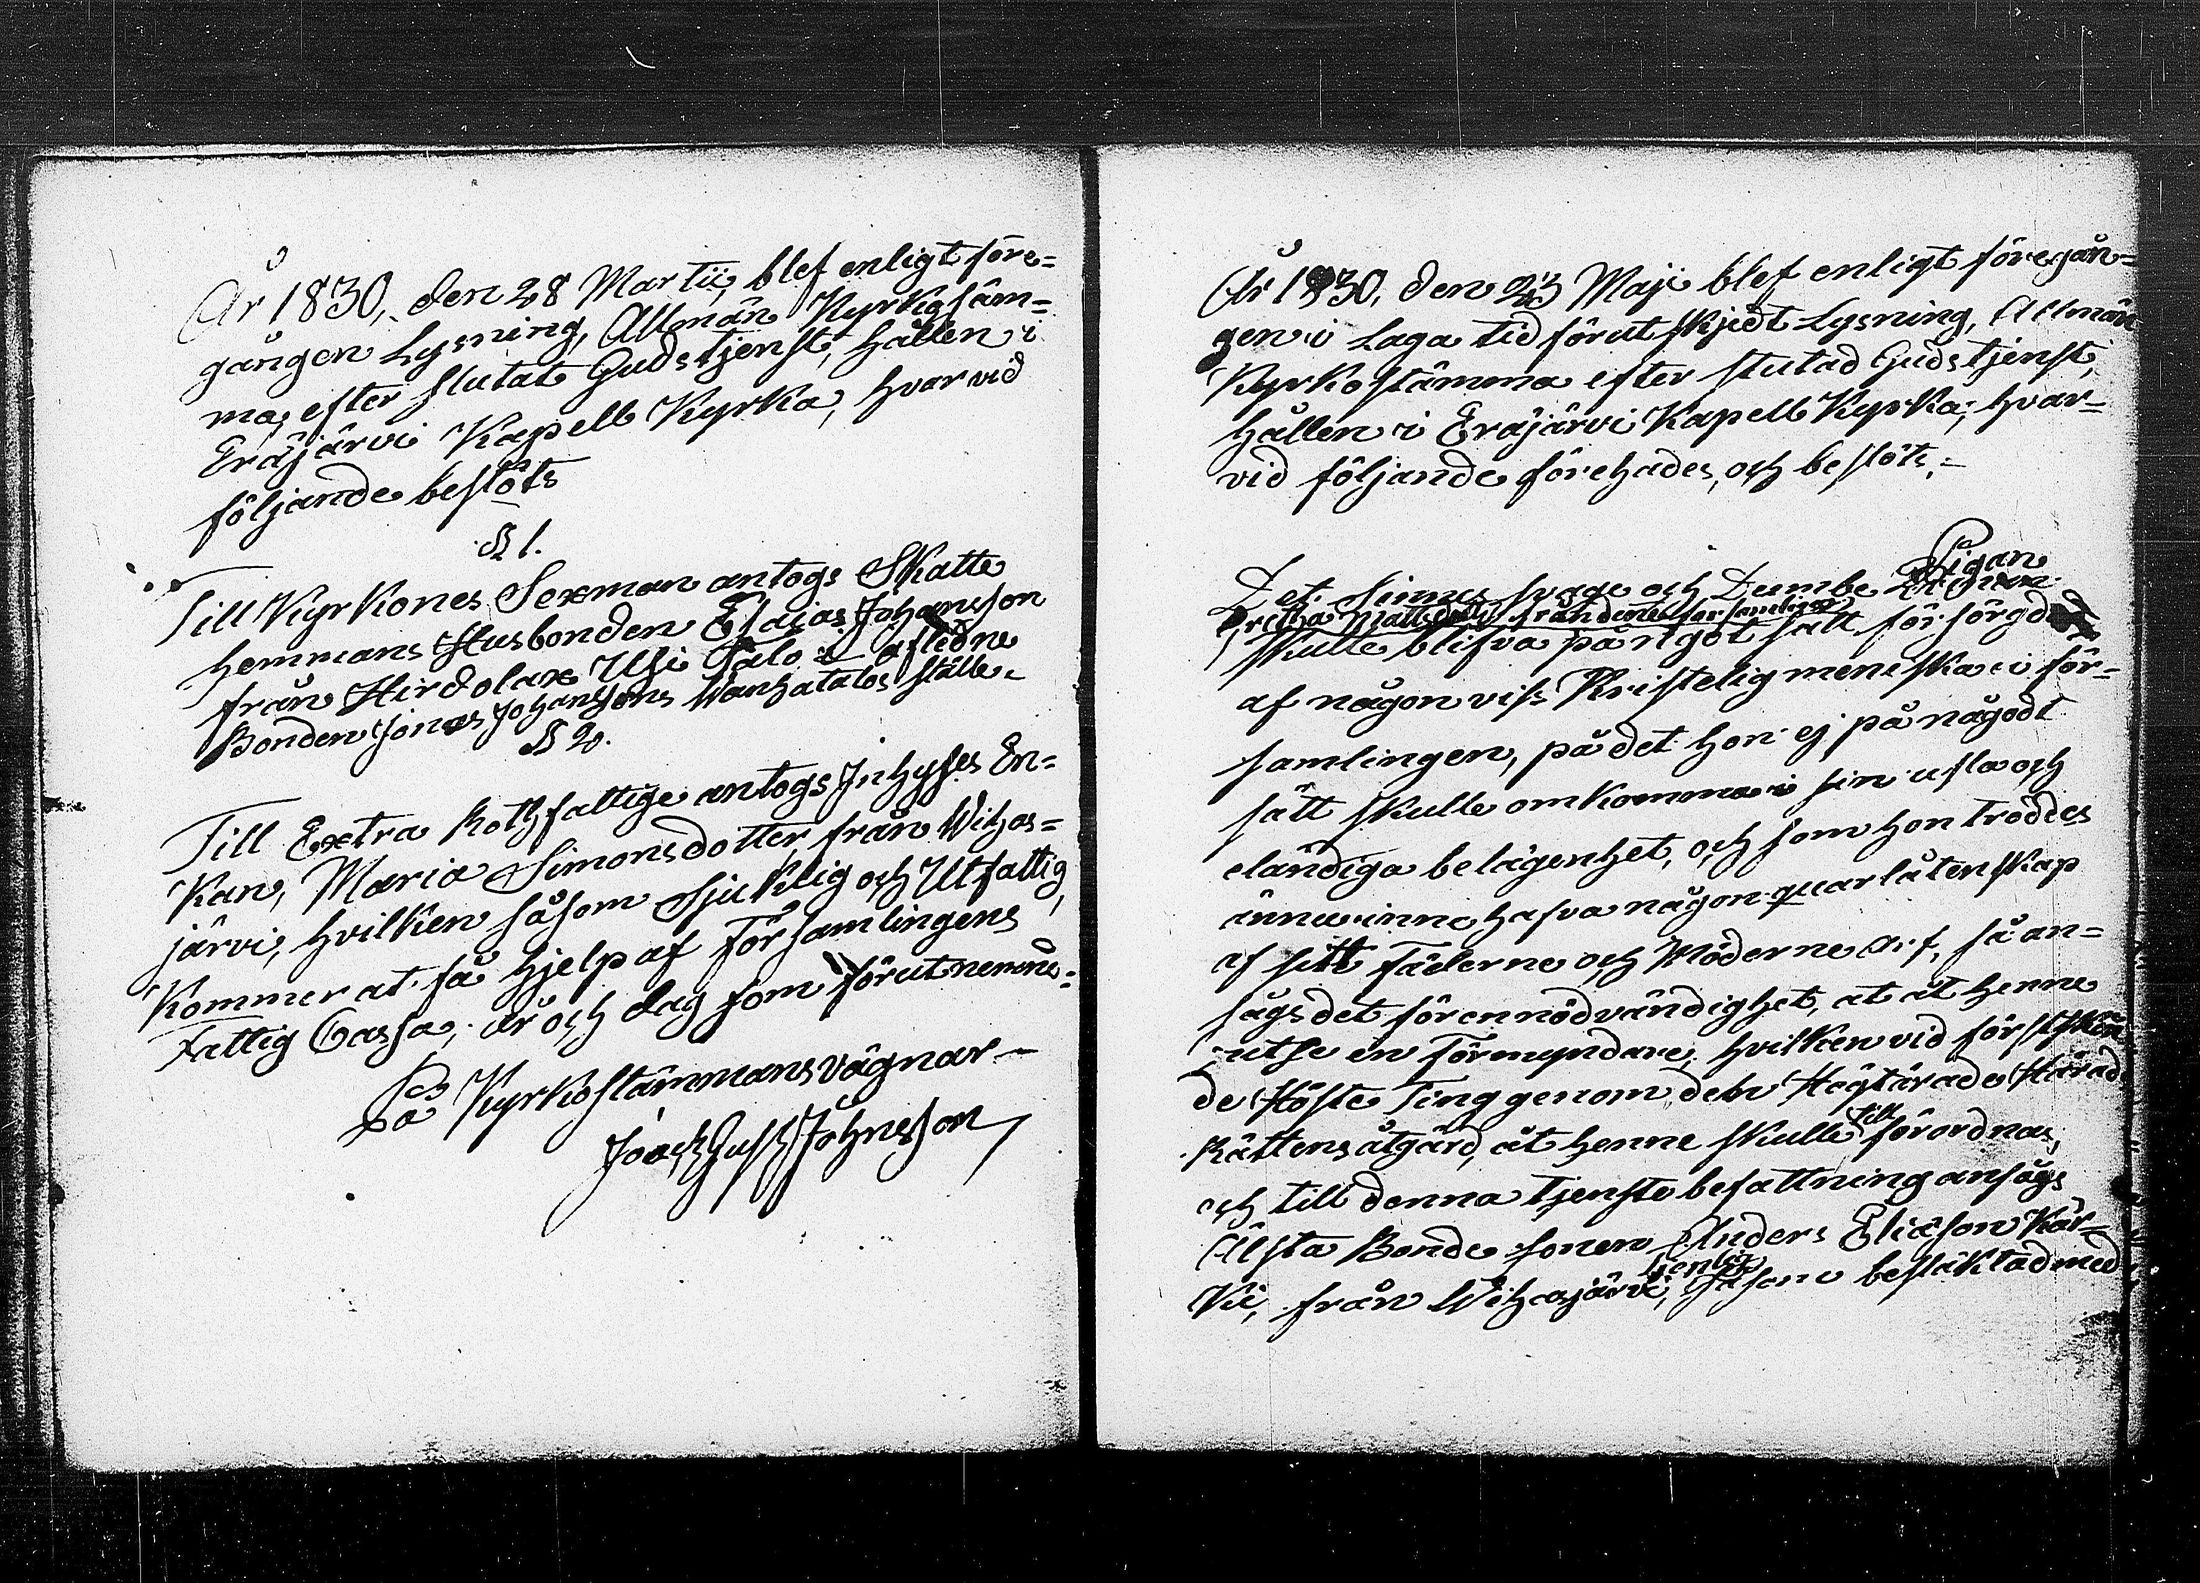 År 1830, den 28 Martii, blef enligt före=
gången Lysning, Allmän Kyrkostäm=
ma, efter slutat Gudstjenst, hållen i
Eräjärvi Kapell Kyrka, hvarvid
följande beslöts
§ 1.
Till Kyrkones Sexman antogs Skatte
hemmans Husbonden Esaias Johansson
från Hirdolax Usi Talo i afledne
Bonden Jonas Johanssons Wanhatalos ställe.
§ 2.
Till Extra Rothfattige antogs Inhyses En=
kan, Maria Simonsdotter från Wihas=
järvi, hvilken såsom sjuklig och Utfattig,
Kommer at få hjelp af Församlingens
Fattig Cassa, år och dag som förut nemnd.
På Kyrkostämmans vägnar
Joach Gust Johnsson
År 1830, den 23 Maji blef enligt föregån=
gen i Laga tid förut skjedt Lysning, Allmän
Kyrkostämma efter slutad Gudstjenst,
hållen i Eräjärvi Kapell Kyrka, hvar=
vid följande förehades, och beslöts.=
Pigan
Det Sinnes svage och Dumbe
Gretha Mattsdotter från denne församling
skulle blifva på något sätt försörgd
af någon viss Kristelig meniska i för=
samlingen, på det hon ej på någodt
sätt skulle omkomma i sin usla och
eländiga belägenhet, och som hon troddes
ännu innehafva någon quarlåtenskap
af sitt Fäderne och Möderne Arf, så an=
sågs det för en nödvändighet, at åt henne
utse en Förmyndare, hvilken vid först skien
de Höste Ting genom den Högtärade Härads
Rättens åtgärd, åt henne skulle till förordnas,
och till denna tjenste befattning ansågs
Älsta Bonde sonen Anders Eliæson Kär=
ki, från Wihasjärvi, tjenlig såsom besläktad med